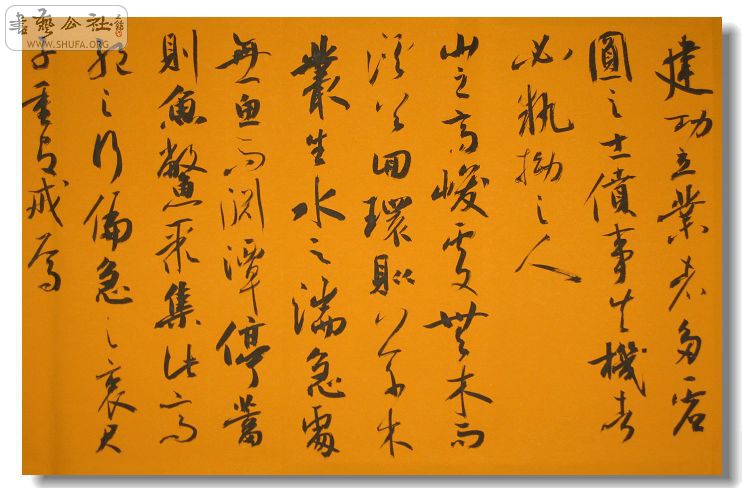 書藝公社
WWW.SHUFA.ORG
建功立業者多虛
圓之士僨事失機者
必執拗之人
山之高峻處無木而
溪谷回環則草木
叢生水之湍急處
無魚而淵潭停蓄
則魚鱉聚集此高
絕之行偏急之衷君
子重有戒焉